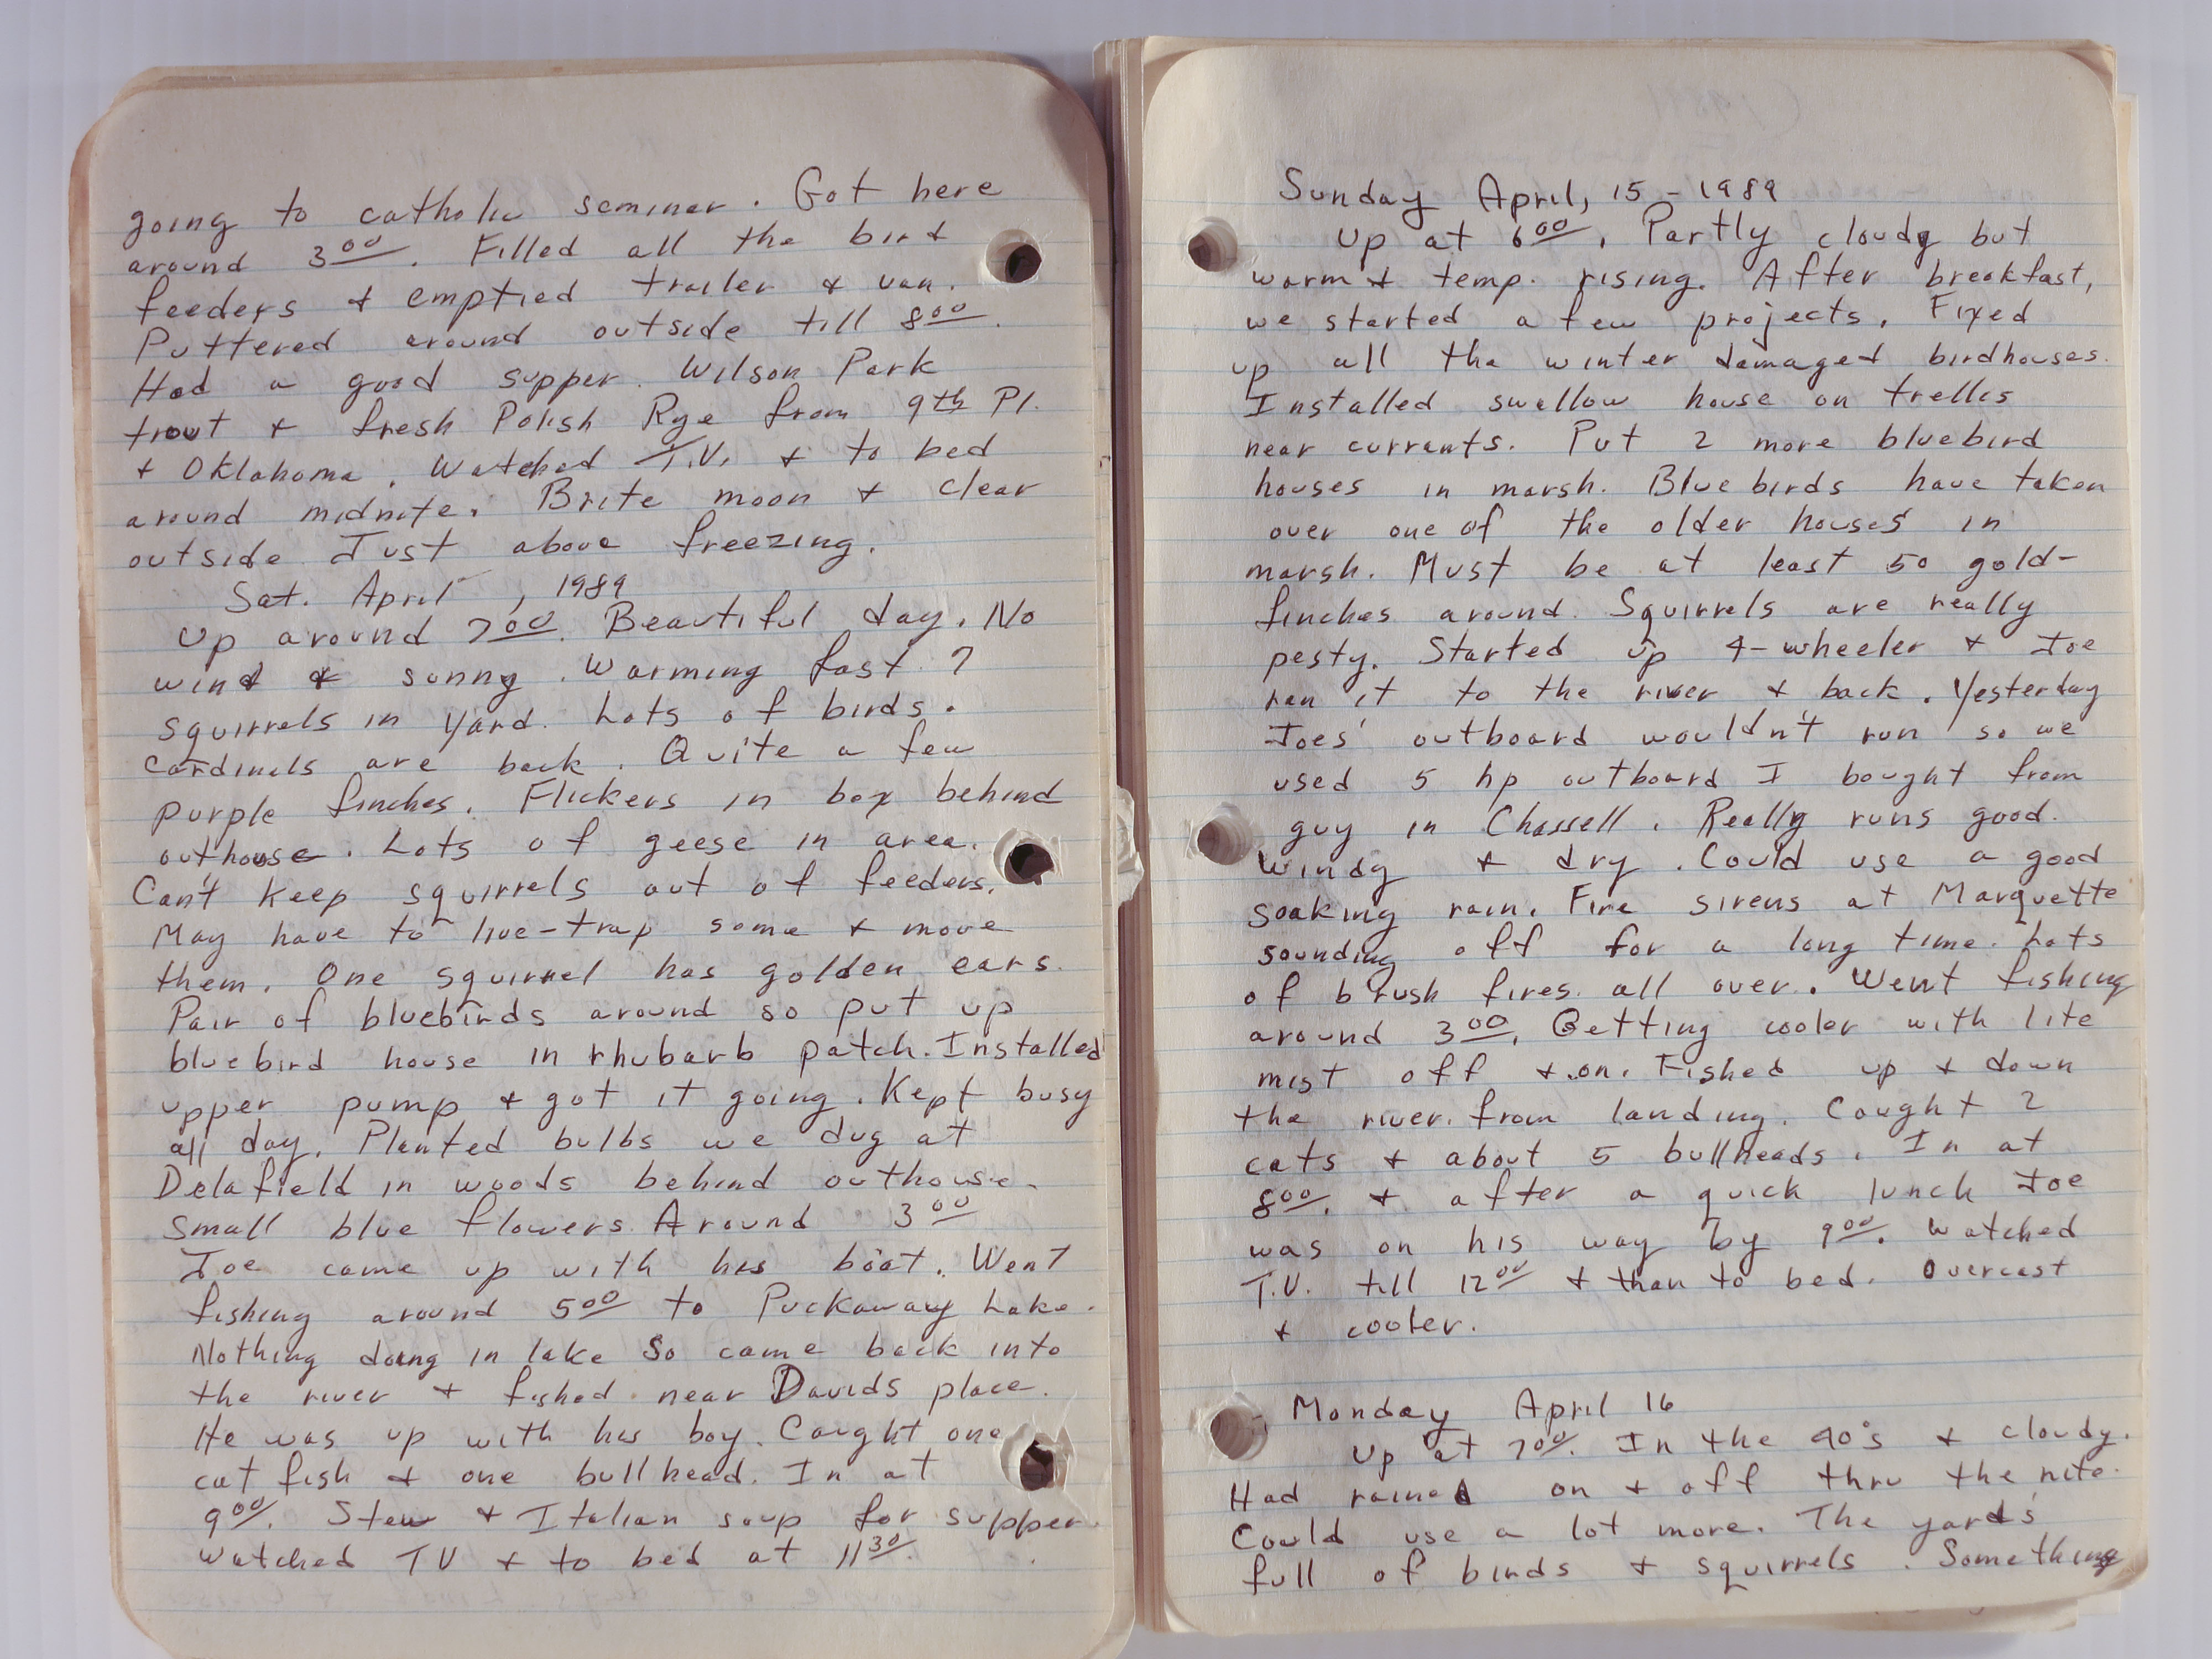 going to catholic seminar. Got here
around 3 00. Filled all the bird
feeders + emptied trailer + van.
Puttered around outside till 8 00.
Had a good supper. Wilson Park
trout + fresh Polish Rye from 9th Pl.
+ Oklahoma. Watched T.V. + to bed
around midnite. Brite moon + clear
outside Just above freezing.
Sat. April , 1989
Up around 7 00. Beautiful day. No
wind + sunny. Warming fast. 7
squirrels in yard. Lots of birds.
Cardinals are back. Quite a few
purple finches. Flickers in box behind
outhouse. Lots of geese in area.
Can't keep squirrels out of feeders.
May have to live-trap some + move
them. One squirrel has golden ears.
Pair of bluebirds around so put up
bluebird house in rhubarb patch. Installed
upper pump + got it going. Kept busy
all day. Planted bulbs we dug at
Delafield in woods behind outhouse.
Small blue flowers. Around 3 00
Joe came up with his boat. Went
fishing around 5 00 to Puckaway Lake.
Nothing doing in lake so came back into
the river + fished near Davids place.
He was up with his boy. Caught one
cat fish + one bullhead. In at
9 00. Stew + Italian soup for supper
Watched TV + to bed at 11 30.
Sunday April, 15 - 1989
Up at 6 00. Partly cloudy but
warm + temp. rising. After breakfast,
we started a few projects. Fixed
up all the winter damaged birdhouses.
Installed swallow house on trellis
near currants. Put 2 more bluebird
houses in marsh. Blue birds have taken
over one of the older houses in
marsh. Must be at least 50 gold-
finches around. Squirrels are really
pesty. Started up 4-wheeler + Joe
ran it to the river + back. Yesterday
Joes' outboard wouldn't run so we
used 5 hp outboard I bought from
guy in Chassell. Really runs good.
Windy + dry. Could use a good
soaking rain. Fire sirens at Marquette
sounding off for a long time. Lots
of brush fires all over. Went fishing
around 3 00. Getting cooler with lite
mist off + on. Fished up + down
the river from landing. Caught 2
cats + about 5 bullheads. In at
8 00. + after a quick lunch Joe
was on his way by 9 00. Watched
T.V. till 12 00 + than to bed. Overcast
+ cooler.
Monday April 16
Up at 7 00. In the 40's + cloudy.
Had rained on + off thru the nite.
Could use a lot more. The yards
full of birds + squirrels. Something